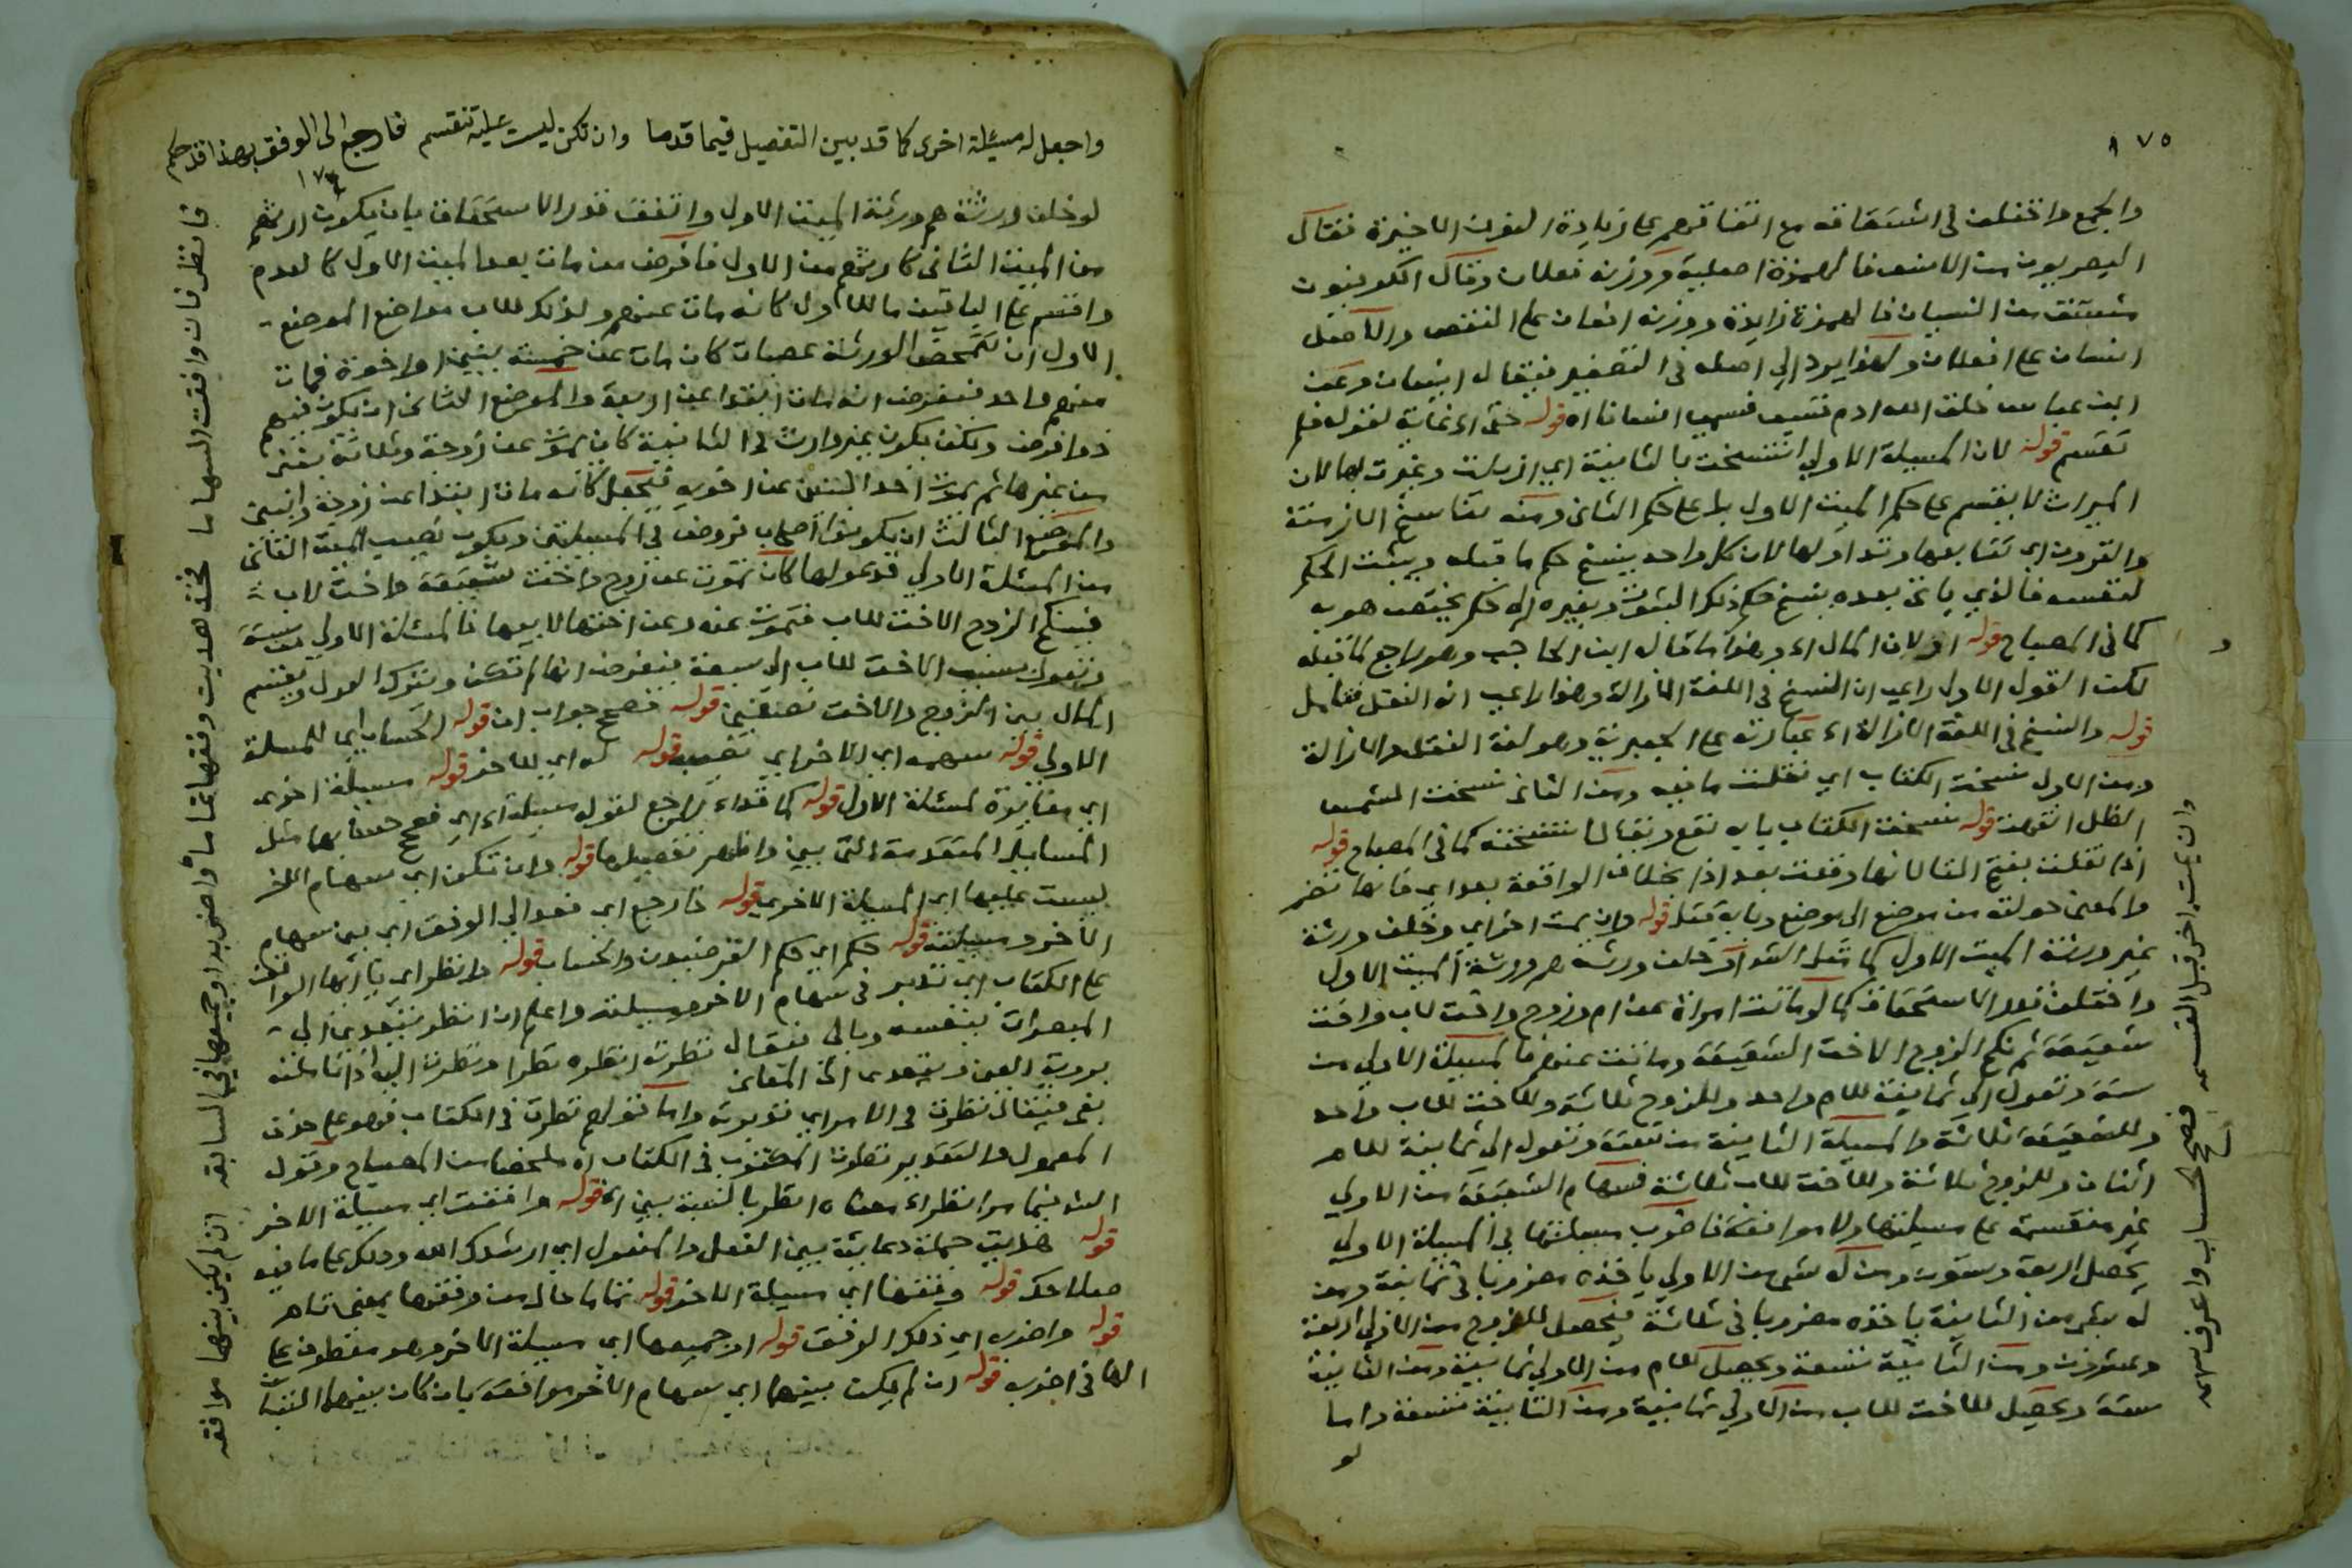 ١٧٥
والجمع واختلف في اشتقاقه مع اتفاقهم على زيادة النون الاخيرة فقال
البصريون من الانس فالهمزة اصلية ووزنه فعلان وقال الكوفيون
مشتق من النسيان فالهمزة زايدة ووزنه افعان على النقص والاصل
انسيان على افعلان ولهذا يرد الى اصله في التصغير فيقال انيسيان وعن
ابن عباس خلق الله ادم فنسى فسمى انسانا اه قوله حتى اه غاية لقوله فلم
تقسم قوله لان المسيلة الاولى انتسخت بالثانية اي ازيلت وغيرت بها لان
الميراث لا يقسم على حكم الميت الاول بل على حكم الثاني ومنه تناسخ الازمنة
والقرون اي تتابعها وتداولها لان كل واحد ينسخ حكم ما قبله ويثبت الحكم
لنفسه فالذي ياتي بعده ينسخ حكم ذلك الثبوت ويغيره الى حكم يختص هو به
كما في المصباح قوله او لان المال اه وهذا ما قاله ابن الحاجب وهو راجع لما قبله
لكن القول الاول راعى ان النسخ في اللغة الازالة وهذا راعى انه النقل فتامل
قوله والنسخ في اللغة الازالة اه عبارته على الجعبرية وهو لغة النقل والازالة
ومن الاول نسخت الكتاب اي نقلت ما فيه ومن الثاني نسخت الشمس
الظل انتهت قوله نسخت الكتاب بابه نفع ويقال انتسخته كما في المصباح قوله
اذا نقلت بفتح التا لانها وقعت بعد اذا بخلاف الواقعة بعد اي فانها تضم
والمعنى حولته من موضع الى موضع وبابه قتل قوله وان يمت اخر اي وخلف ورثة
غير ورثة الميت الاول كما مثل الش او خلف ورثة هم ورثة الميت الاول
واختلف قدر الاستحقاق كما لو ماتت امراة عن ام وزوج واخت لاب واخت
شقيقة ثم نكح الزوج الاخت الشقيقة وماتت عنهم فالمسيلة الاولى من
ستة وتعول الى ثمانية للام واحد وللزوج ثلاثة وللاخت للاب واحد
وللشقيقة ثلاثة والمسيلة الثانية من ستة وتعول الى ثمانية للام
اثنان وللزوج ثلاثة وللاخت للاب ثلاثة فسهام الشقيقة من الاولى
غير منقسمة على مسيلتها ولا موافقة فاضرب مسيلتها في المسيلة الاولى
يحصل اربعة وستون ومن له شى من الاولى ياخذه مضروبا في ثمانية ومن
له شى من الثانية ياخذه مضروبا في ثلاثة فيحصل للزوج من الاولى اربعة
وعشرون ومن الثانية تسعة ويحصل للام من الاولى ثمانية ومن الثانية
ستة ويحصل للاخت للاب من الاولى ثمانية ومن الثانية تسعة واما
لو
وان يمت اخر قبل القسمه فصحح الحساب واعرف سهمه
واجعل له مسيلة اخرى كما قد بيين التفصيل فيما قدما وان تكن ليست عليه تنقسم فارجع الى الوفق بهذا قد حكم
١٧٤
لو خلف ورثة هم ورثة الميت الاول واتفق قدر الاستحقاق بان يكون ارثهم
من الميت الثاني كارثهم من الاول فافرض من مات بعد الميت الاول كالعدم
واقسم على الباقين مال الاول كانه مات عنهم ولذلك ثلاث مواضع الموضع
الاول ان تتمحض الورثة عصبات كان مات عن خمسة بنين او اخوة فمات
منهم واحد فيفرض انه مات ابتدا عن اربعة والموضع الثاني ان يكون فيهم
ذو فرض ولكن يكون غير وارث في الثانية كان يموت عن زوجة وثلاثة بنين
من غيرها ثم يموت احد البنين عن اخويه فيجعل كانه مات ابتدا عن زوجة وابنين
والموضع الثالث ان يكونوا اصحاب فروض في المسيلتين ويكون نصيب الميت الثاني
من المسئلة الاولى قدر عولها كان تموت عن زوج واخت شقيقة واخت لاب
فينكح الزوج الاخت للاب فتموت عنه وعن اختها لابيها فالمسئلة الاولى من ستة
وتعول بسبب الاخت للاب الى سبعة فيفرض انها لم تكن ويترك العول ويقسم
المال بين الزوج والاخت نصفين قوله فصحح جواب ان قوله الحساب اي للمسيلة
الاولى قوله سهمه اي الاخر اي نصيبه قوله له اي للاخر قوله مسيلة اخرى
اي مغايرة لمسئلة الاول قوله كما قد اه راجع لقوله مسيلة اه اي فصحح حسابها مثل
المسايل المتقدمة التي بين واظهر تفصيلها قوله وان تكن اي سهام الاخر
ليست عليها اي المسيلة الاخرى قوله فارجع اي فعد الى الوفق اي بين سهام
الاخر ومسيلته قوله حكم اي حكم الفرضيون والحساب قوله وانظر اي يا ايها الواقف
على الكتاب اي تدبر في سهام الاخر ومسيلته واعلم ان انظر يتعدى الى
المبصرات بنفسه وبالى فيقال نظرته انظره نظرا ونظرت اليه اذا تاملته
بروية العين ويتعدى الى المعاني
بفى فيقال نظرت في الامر اي تدبرت واما قولهم نظرت في الكتاب فهو على حذف
المعمول والتقدير نظرت المكتوب في الكتاب اه ملخصا من المصباح وقول
الش فيما مر انظر اه معناه انظر بالنسبة بين اه قوله وافقت اي مسيلة الاخر
قوله هديت جملة دعائية بين الفعل والمفعول اي ارشدك الله ودلك على ما فيه
صلاحك قوله وفقها اي مسيلة الاخر قوله تماما حال من وفقها بمعنى تام
قوله واضربه اي ذلك الوفق قوله او جميعها اي مسيلة الاخر وهو معطوف على
الها في اضربه قوله ان لم يكن بينهما اي سهام الاخر موافقة بان كان بينهما التباين
فانظر فان وافقت السهاما فخذ هديت وفقها تماما واضربه او جميعها في السابقه ان لم يكن بينهما موافقه